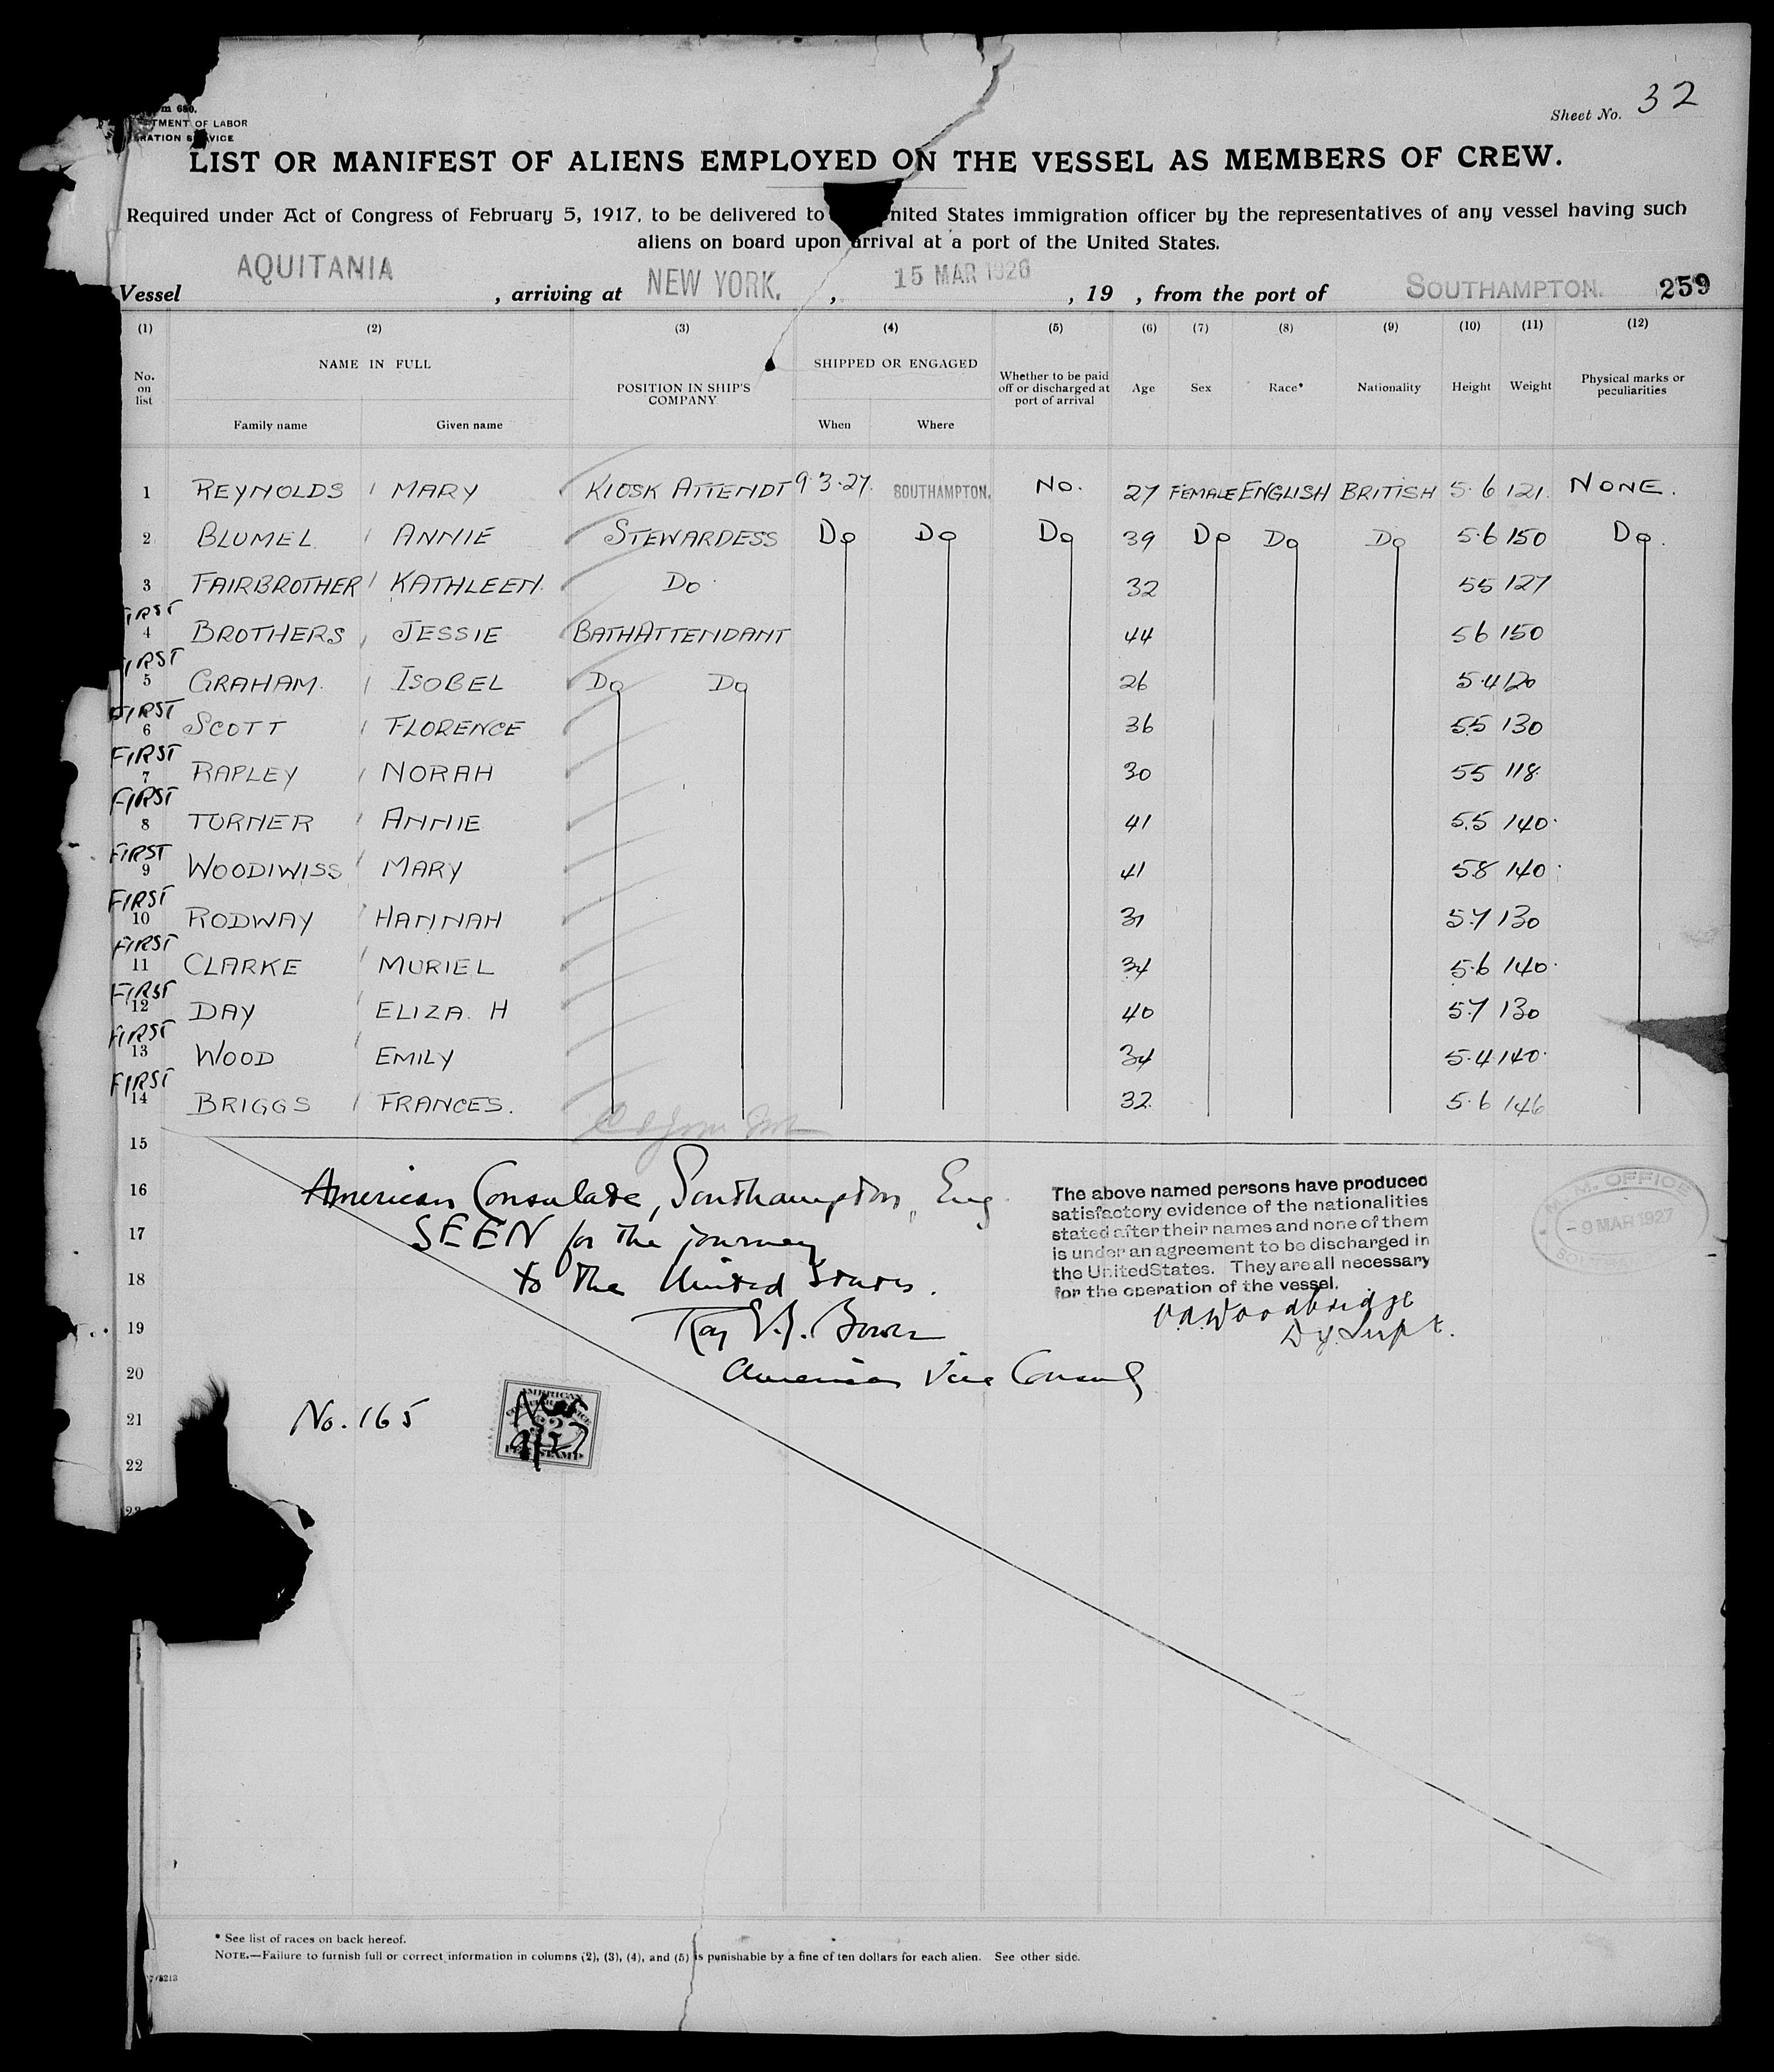 Sheet No. 32
m 680.
TMENT OF LABOR
RATION SERVICE
LIST OR MANIFEST OF ALIENS EMPLOYED ON THE VESSEL AS MEMBERS OF CREW.
Required under Act of Congress of February 5, 1917, to be delivered to nited States immigration officer by the representatives of any vessel having such
aliens on board upon arrival at a port of the United States.
Vessel AQUITANIA, arriving at NEW YORK., 15 MAR 1926, 19 , from the port of SOUTHAMPTON. 259
(1) (2) (3) (4) (5) (6) (7) (8) (9) (10) (11) (12)
No. on list NAME IN FULL POSITION IN SHIP'S COMPANY SHIPPED OR ENGAGED Whether to be paid off or discharged at port of arrival Age Sex Race* Nationality Height Weight Physical marks or peculiarities
Family name Given name When Where
1 REYNOLDS MARY KIOSK ATTENDT 9.3.27. SOUTHAMPTON. NO. 27 FEMALE ENGLISH BRITISH 5.6 121. NONE.
2 BLUMEL ANNIE STEWARDESS Do Do Do 39 Do Do Do 5.6 150 Do.
3 FAIRBROTHER KATHLEEN. Do 32 55 127
FIRST 4 BROTHERS JESSIE BATHATTENDANT 44 56 150
FIRST 5 GRAHAM. ISOBEL Do Do 26 5.4 120
FIRST 6 SCOTT FLORENCE 36 5.5 130
FIRST 7 RAPLEY NORAH 30 55 118.
FIRST 8 TURNER ANNIE 41 5.5 140.
FIRST 9 WOODIWISS MARY 41 58 140.
FIRST 10 RODWAY HANNAH 31 5.7 130
FIRST 11 CLARKE MURIEL 34 5.6 140.
FIRST 12 DAY ELIZA. H 40 57 130
FIRST 13 WOOD EMILY 34 5.4 140.
FIRST 14 BRIGGS FRANCES. 32. 5.6 146
15
16 American Consulate, Southampton, Eng.
17 SEEN for the journey
18 to the United States.
19 Roy E. B. Bower
20 American Vice Consul
The above named persons have produced
satisfactory evidence of the nationalities
stated after their names and none of them
is under an agreement to be discharged in
the United States. They are all necessary
for the operation of the vessel.
Woodbridge
Dy. Supt.
M. M. OFFICE
- 9 MAR 1927
21 No. 165
AMERICAN
Mar
9/27
FEE STAMP
22
23
* See list of races on back hereof.
NOTE.—Failure to furnish full or correct information in columns (2), (3), (4), and (5) is punishable by a fine of ten dollars for each alien. See other side.